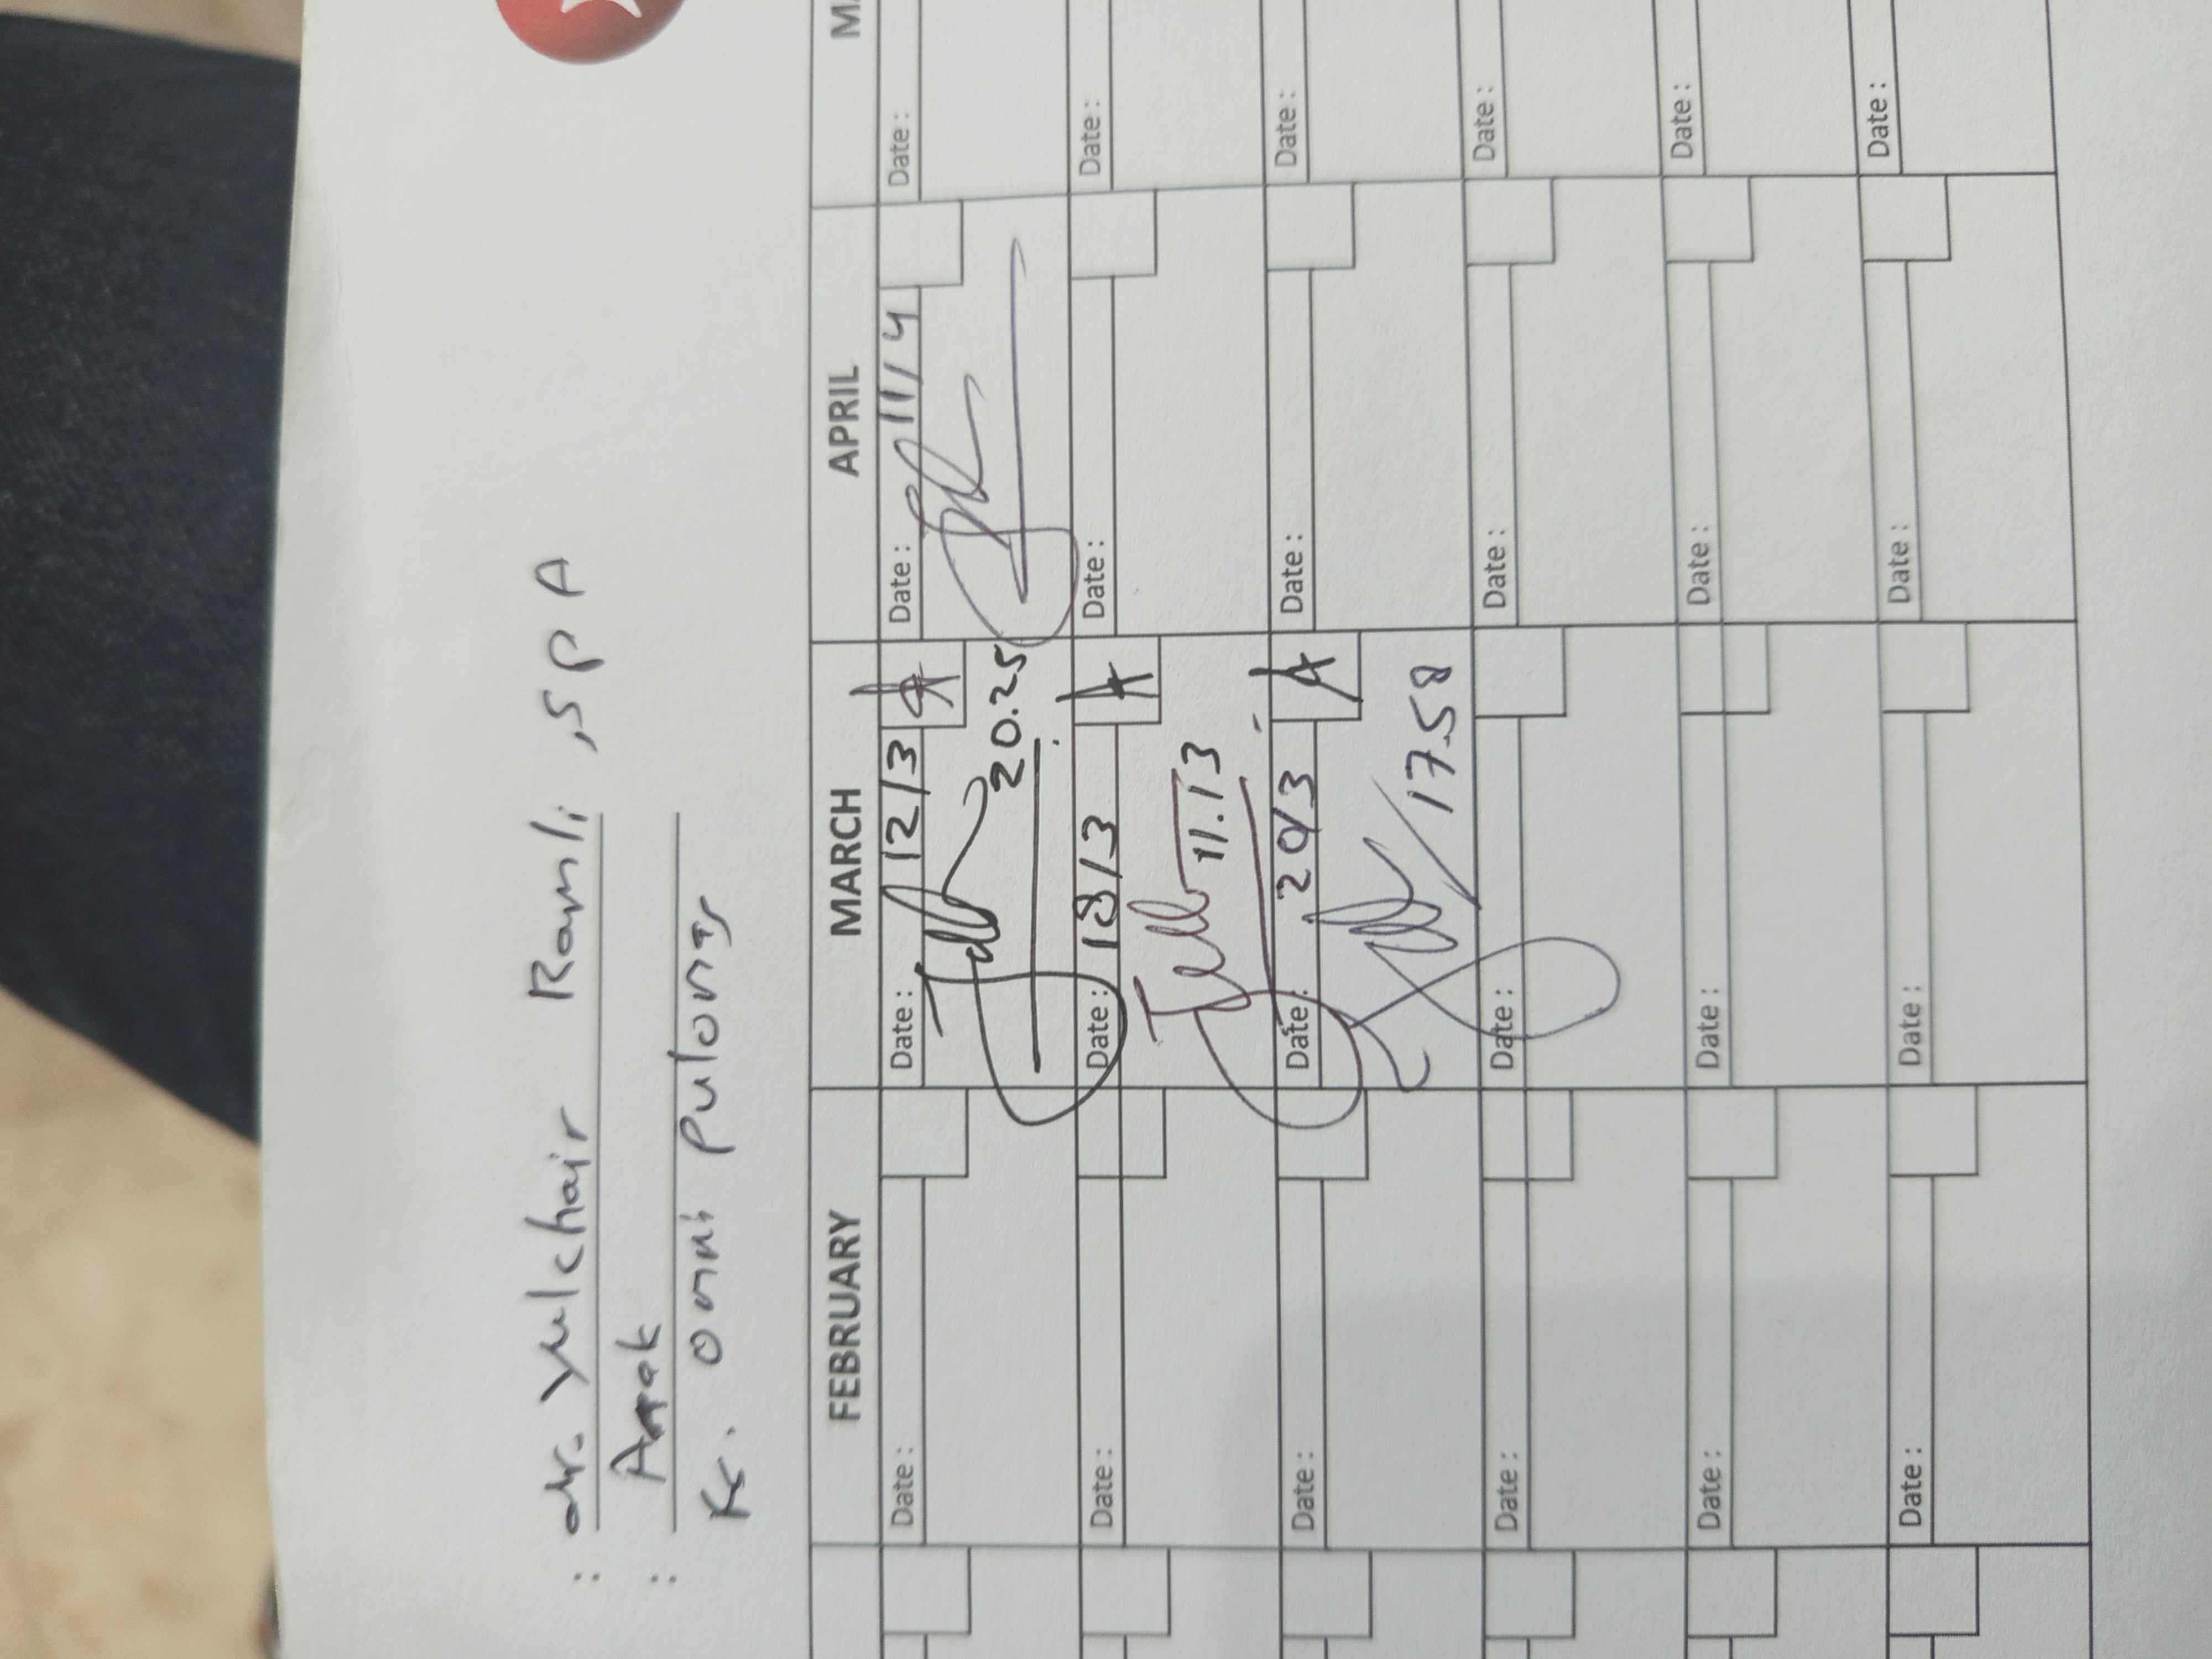 : dr. Yulchair Ramli, SpA
: Anak
Kc. Omni Pulomas
FEBRUARY MARCH APRIL
Date : Date : 12/3 Date : 11/4 Date :
20.25
Date : Date : 18/3 Date : Date :
11.13
Date : Date : 20/3 Date : Date :
17.58
Date : Date : Date : Date :
Date : Date : Date : Date :
Date : Date : Date : Date :